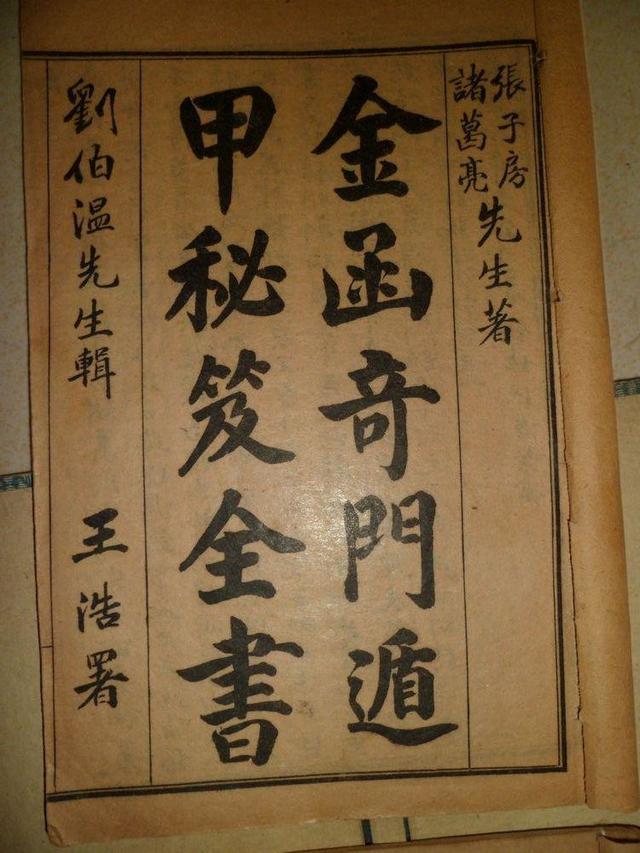 張子房
諸葛亮
先生著
金函奇門遁
甲秘笈全書
劉伯温先生輯
王浩署